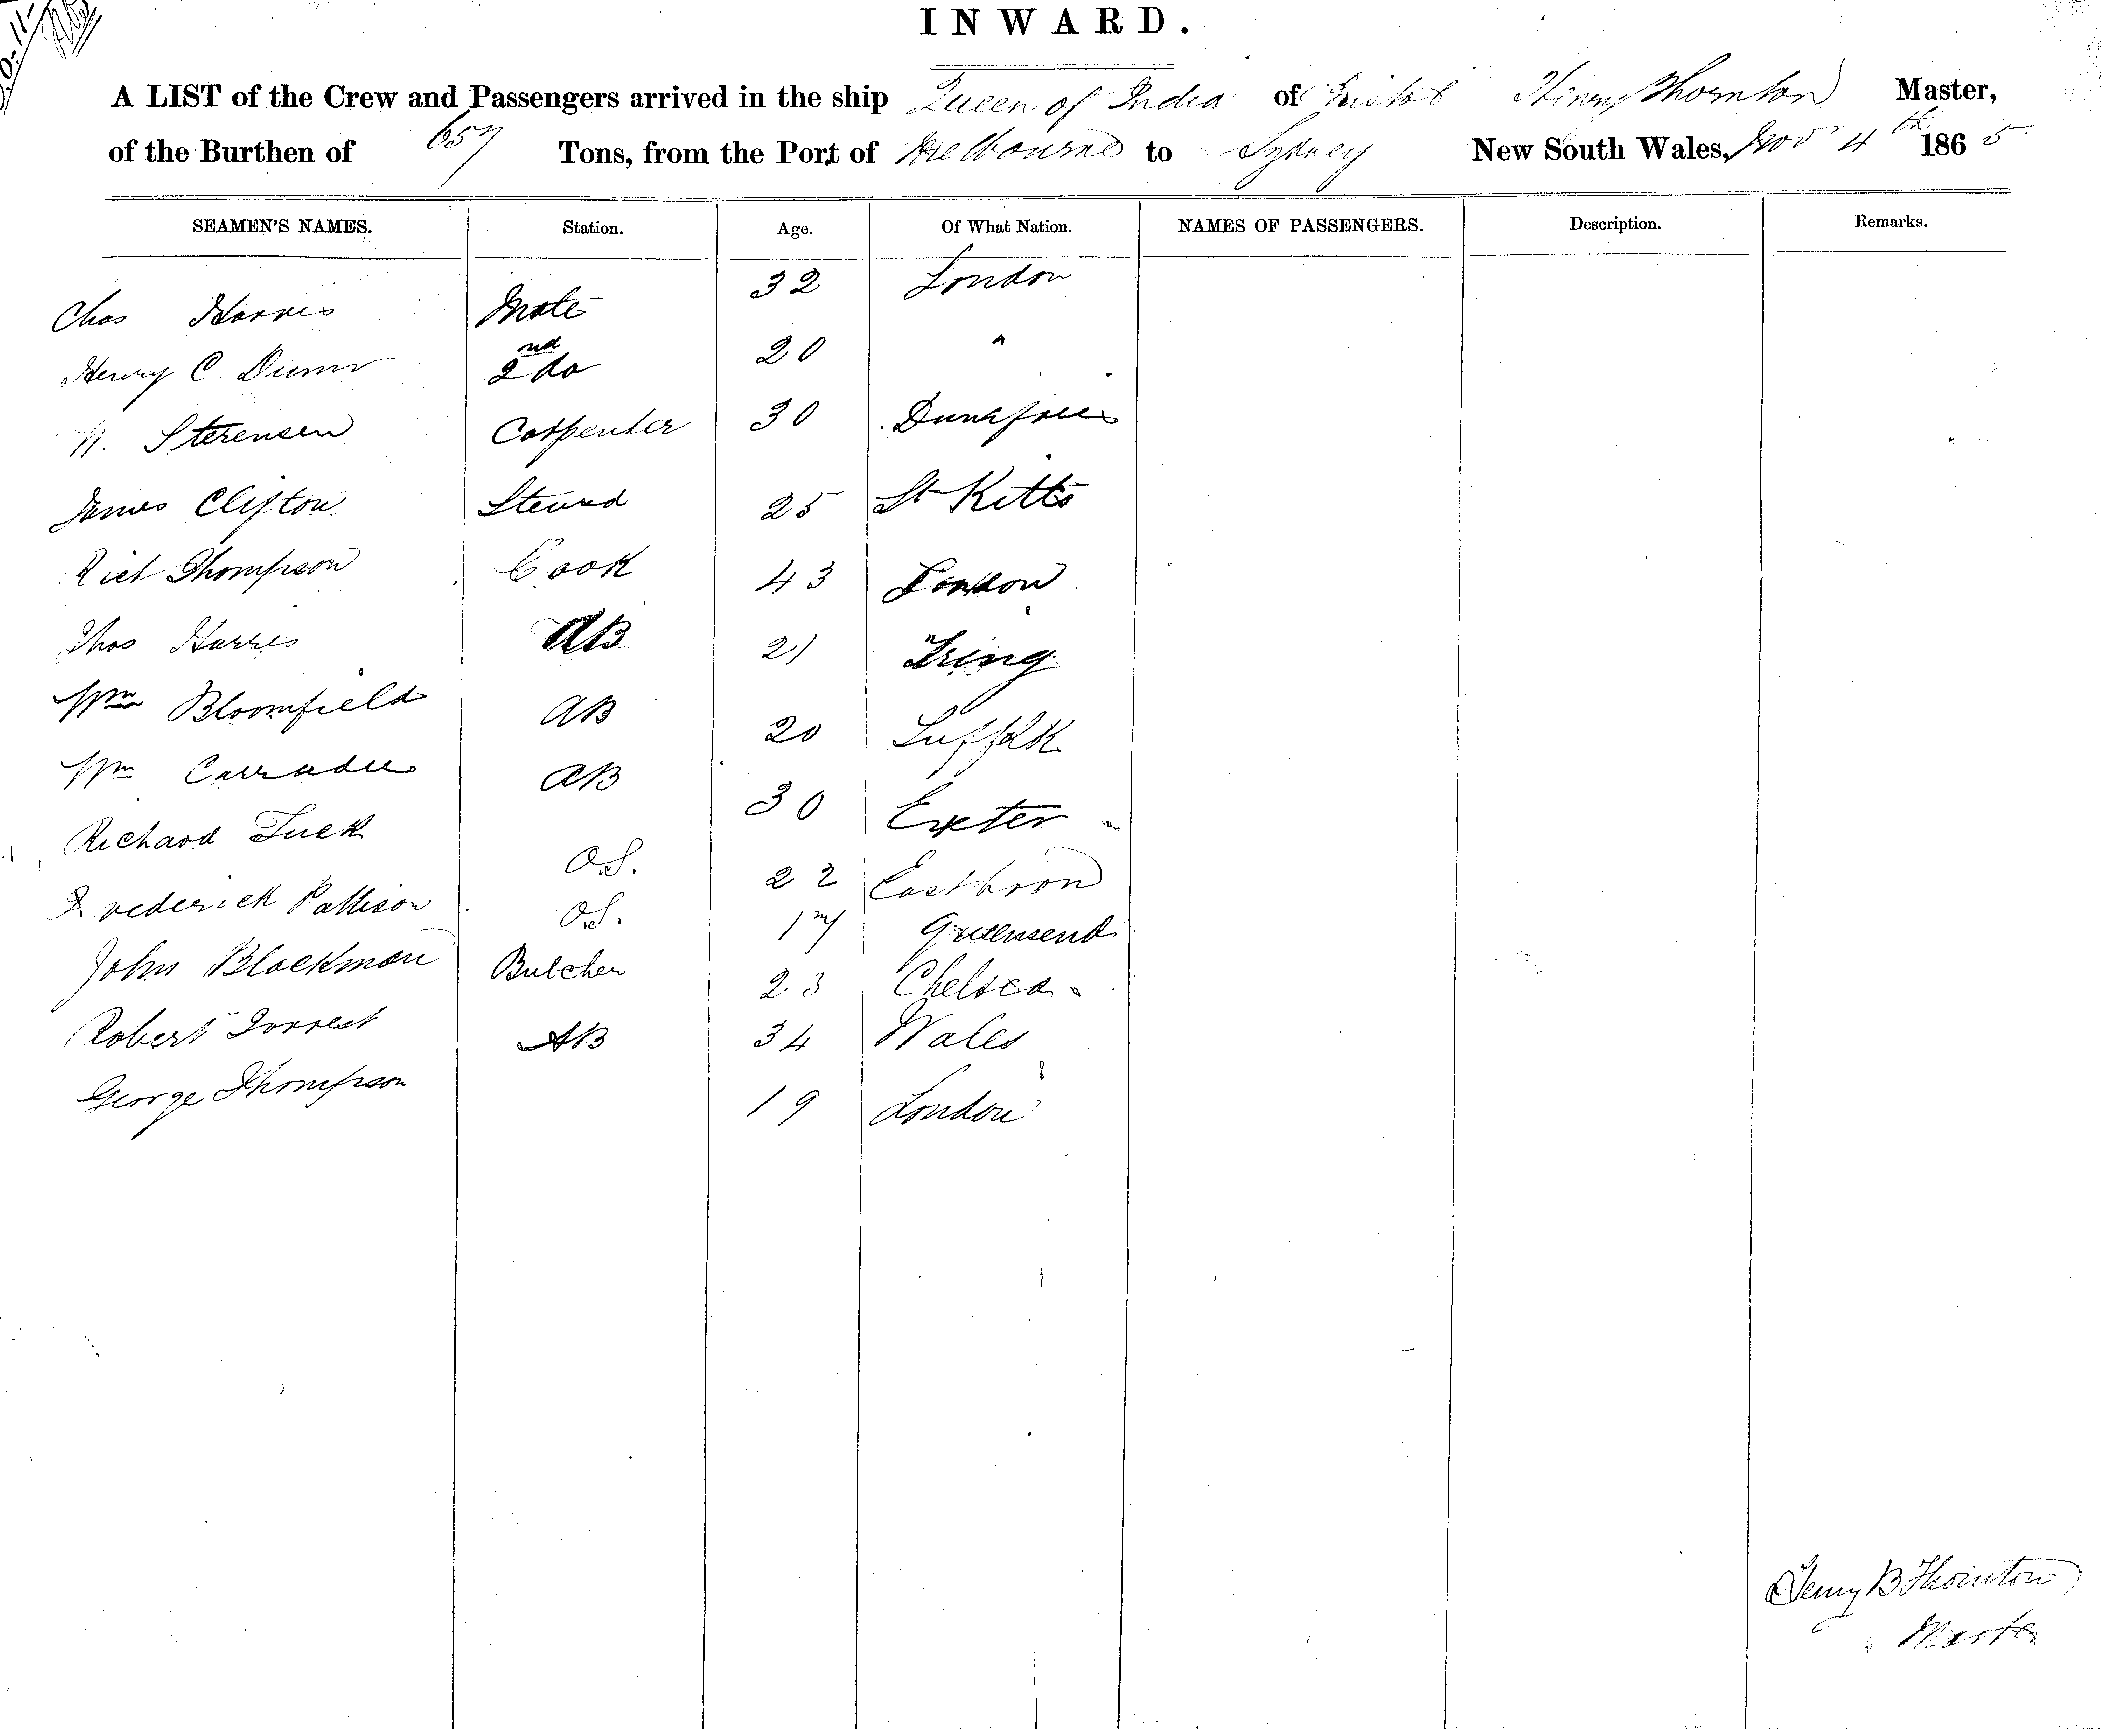 INWARD.
A LIST of the Crew and Passengers arrived in the ship Queen of India of Bristol Henry Thornton Master,
of the Burthen of 657 Tons, from the Port of Melbourne to Sydney New South Wales, Nov 4th 1865
SEAMEN'S NAMES. Station. Age. Of What Nation. NAMES OF PASSENGERS. Description. Remarks.
Chas Harris Mate 32 London
Henry C. Dunn 2nd do 20 "
N. Sterensen Carpenter 30 Dumfries
James Clifton Steward 25 St Kitts
Richd Thompson Cook 43 London
Thos Harris AB 21 Tring
Wm Bloomfield AB 20 Suffolk
Wm AB 30 Exeter
Richard Tuck O.S. 22 Eastbron
Frederick Pattison O.S. 17 Queensend
John Blackman Butcher 23 Chelsea
Robert Forrest AB 34 Wales
George Thompson 19 London
Henry B Thornton
Master